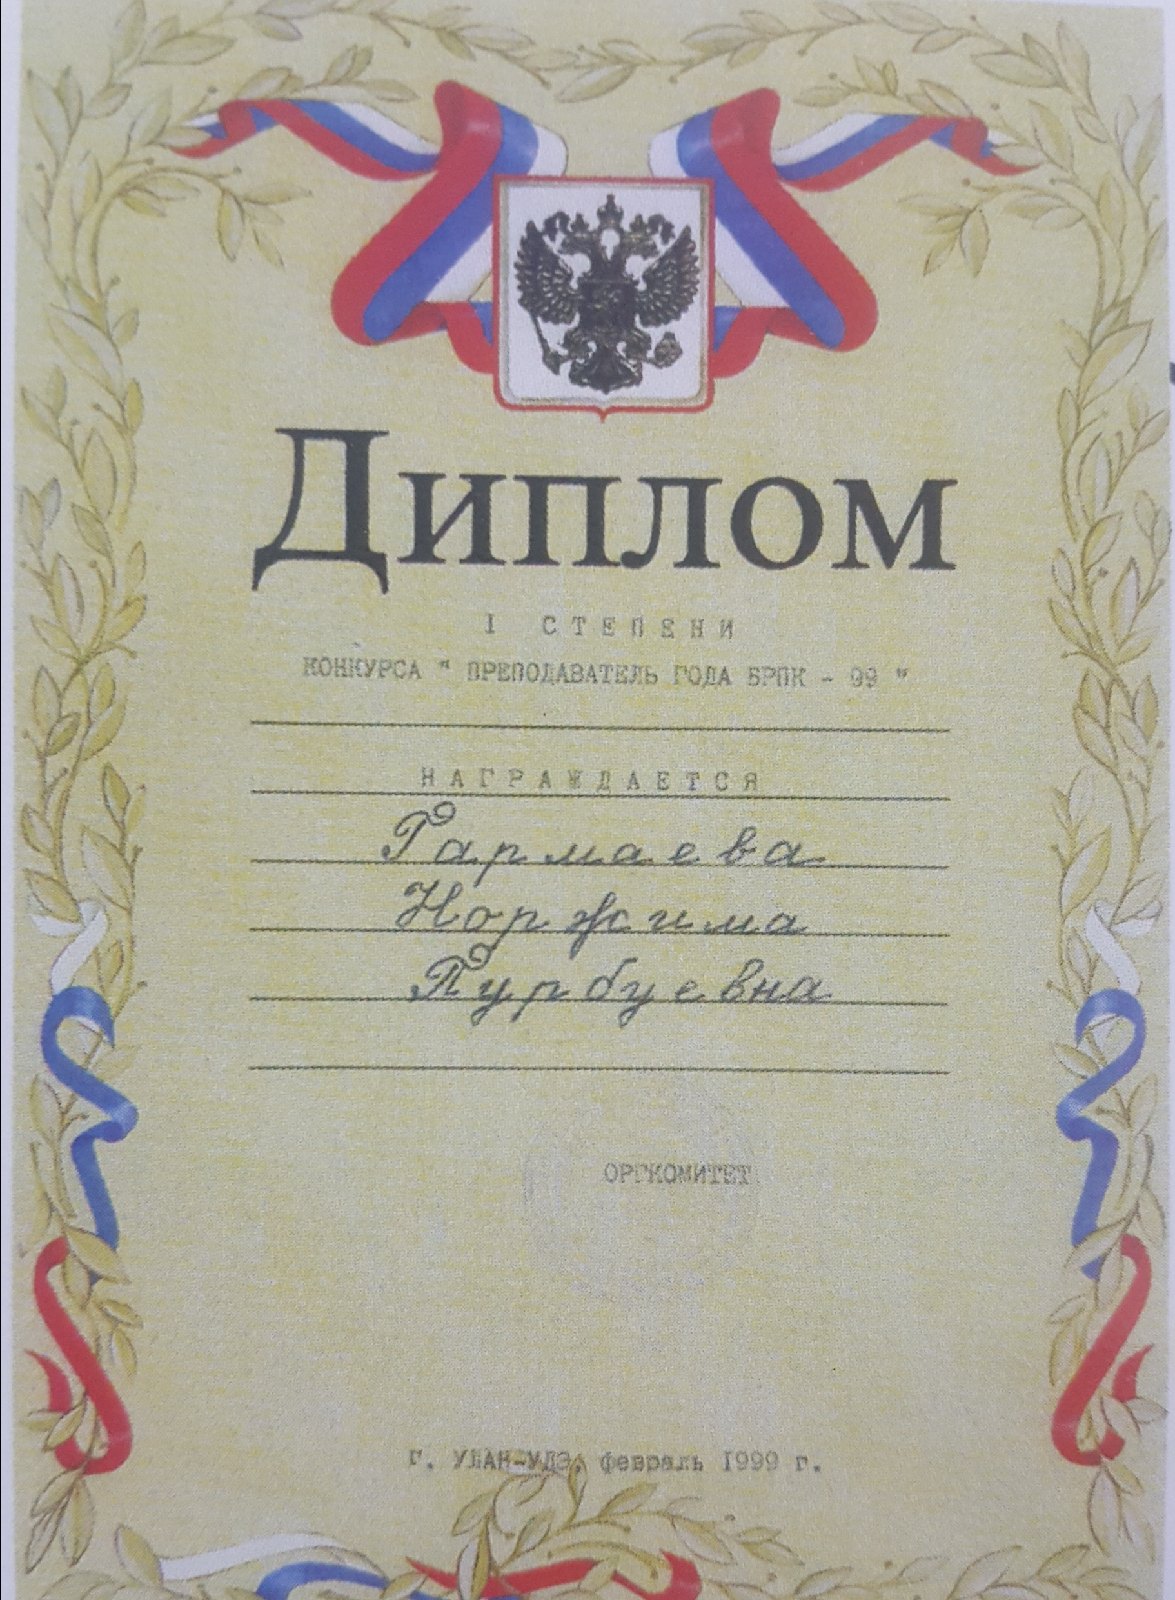 Диплом
I СТЕПЕНИ
КОНКУРСА " ПРЕПОДАВАТЕЛЬ ГОДА БРПК - 99 "
НАГРАЖДАЕТСЯ
Гармаева
Норжима
Пурбуевна
ОРГКОМИТЕТ
г. УЛАН-УДЭ, февраль 1999 г.